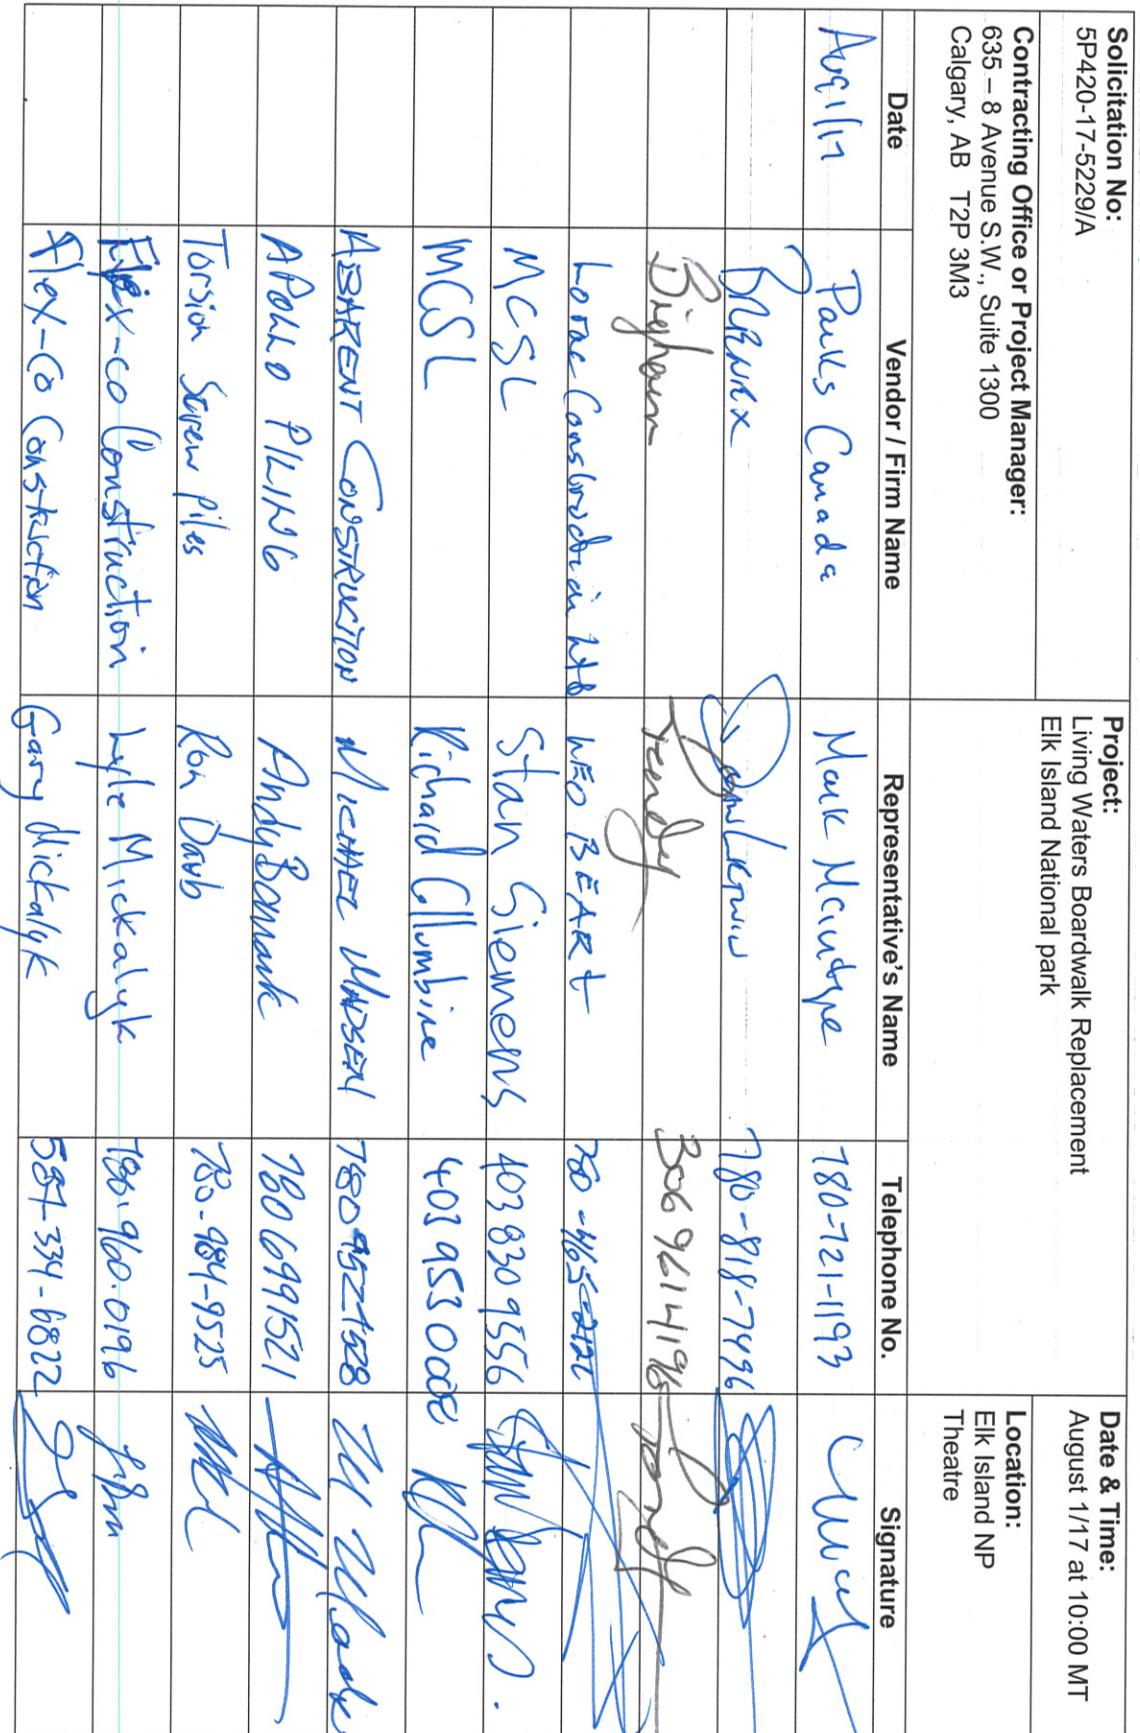 Solicitation No:
5P420-17-5229/A
Project:
Living Waters Boardwalk Replacement
Elk Island National park
Date & Time:
August 1/17 at 10:00 MT
Contracting Office or Project Manager:
635 – 8 Avenue S.W., Suite 1300
Calgary, AB T2P 3M3
Location:
Elk Island NP
Theatre
Date Vendor / Firm Name Representative's Name Telephone No. Signature
Aug 1/17 Parks Canada Mark McIntyre 780-721-1193
780-818-7496
Bigham 306 961 4196
Construction Ltd LEO BEART
MCSL Stan Siemens 403 830 9556
MCSL Richard Collumbine 403 953 0008
ABARENT CONSTRUCTION MICHAEL MADSEN
APOLLO PILING Andy 780 6991521
Torsion Screw Piles Ron Daub 780-984-9525
Flex-co Construction Lyle Mickalyk 780.960.0196
Flex-Co Construction Gary Mickalyk 587-334-6822